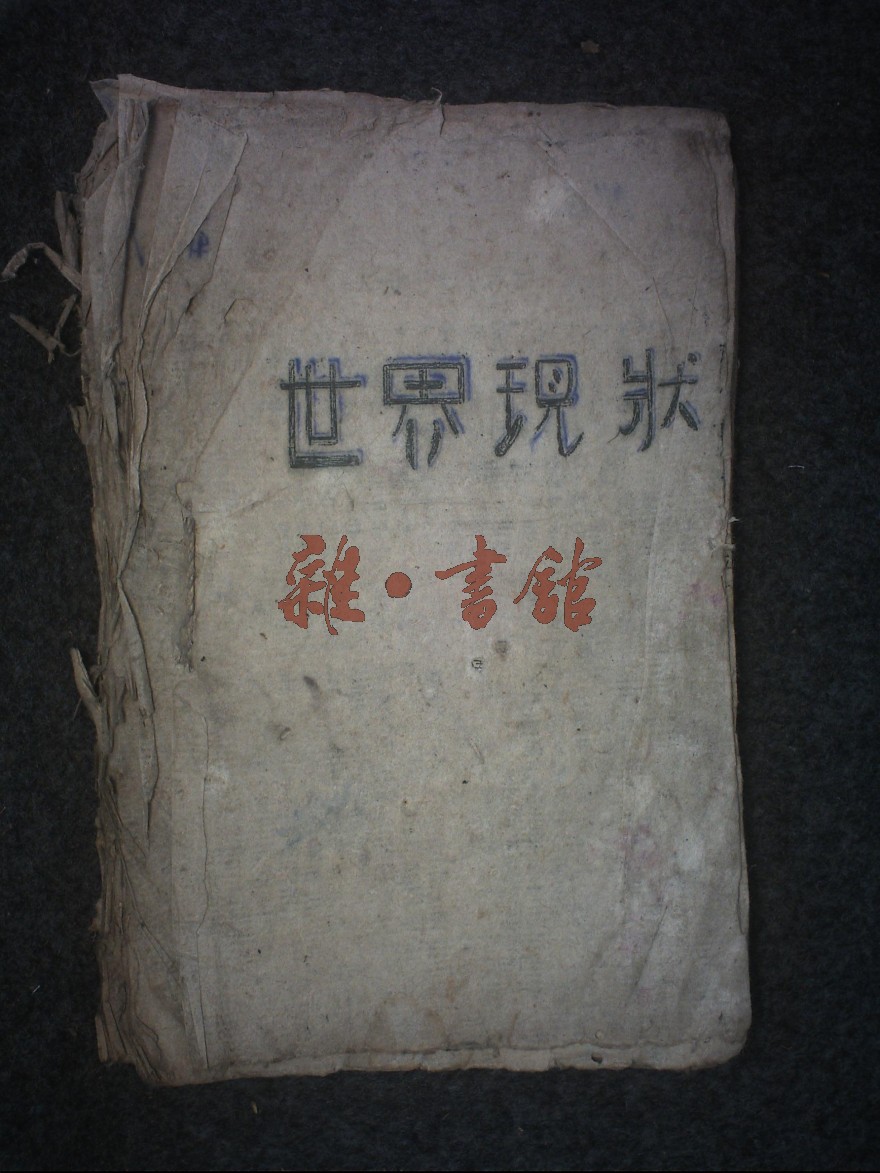 世界現狀
雜·書館